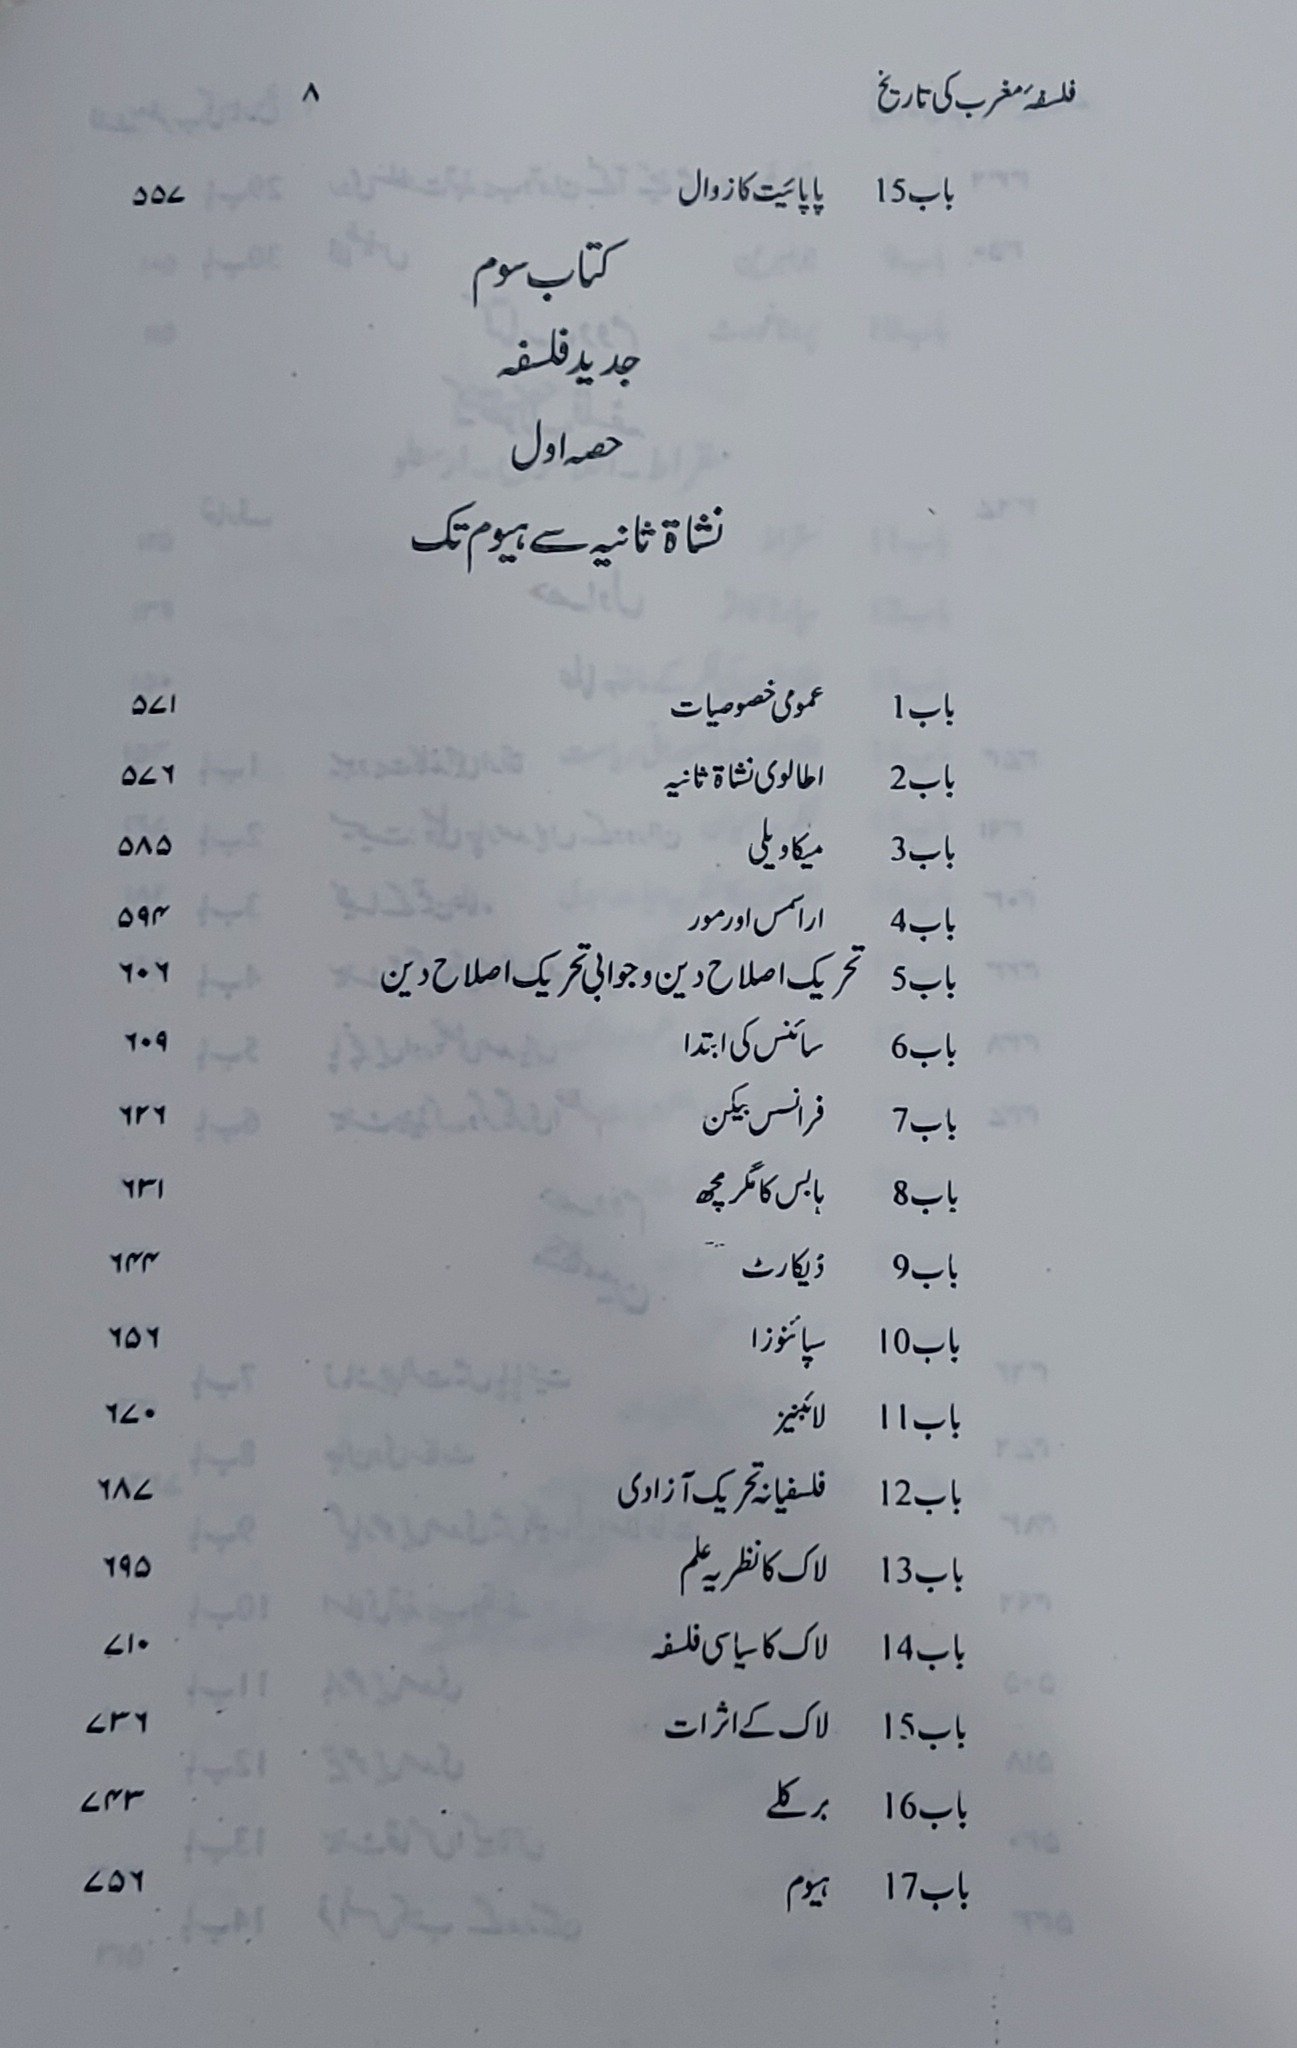 فلسفۂ مغرب کی تاریخ ۸
باب 15 پاپائیت کا زوال ۵۵۷
کتاب سوم
جدید فلسفہ
حصہ اول
نشاۃ ثانیہ سے ہیوم تک
باب 1 عمومی خصوصیات ۵۷۱
باب 2 اطالوی نشاۃ ثانیہ ۵۷۶
باب 3 میکاویلی ۵۸۵
باب 4 اراسمس اور مور ۵۹۴
باب 5 تحریک اصلاح دین و جوابی تحریک اصلاح دین ۶۰۶
باب 6 سائنس کی ابتدا ۶۰۹
باب 7 فرانسس بیکن ۶۲۶
باب 8 ہابس کا مگرمچھ ۶۳۱
باب 9 ڈیکارٹ ۶۴۴
باب 10 سپائنوزا ۶۵۶
باب 11 لائبنیز ۶۷۰
باب 12 فلسفیانہ تحریک آزادی ۶۸۷
باب 13 لاک کا نظریہ علم ۶۹۵
باب 14 لاک کا سیاسی فلسفہ ۷۱۰
باب 15 لاک کے اثرات ۷۳۶
باب 16 برکلے ۷۴۳
باب 17 ہیوم ۷۵۶